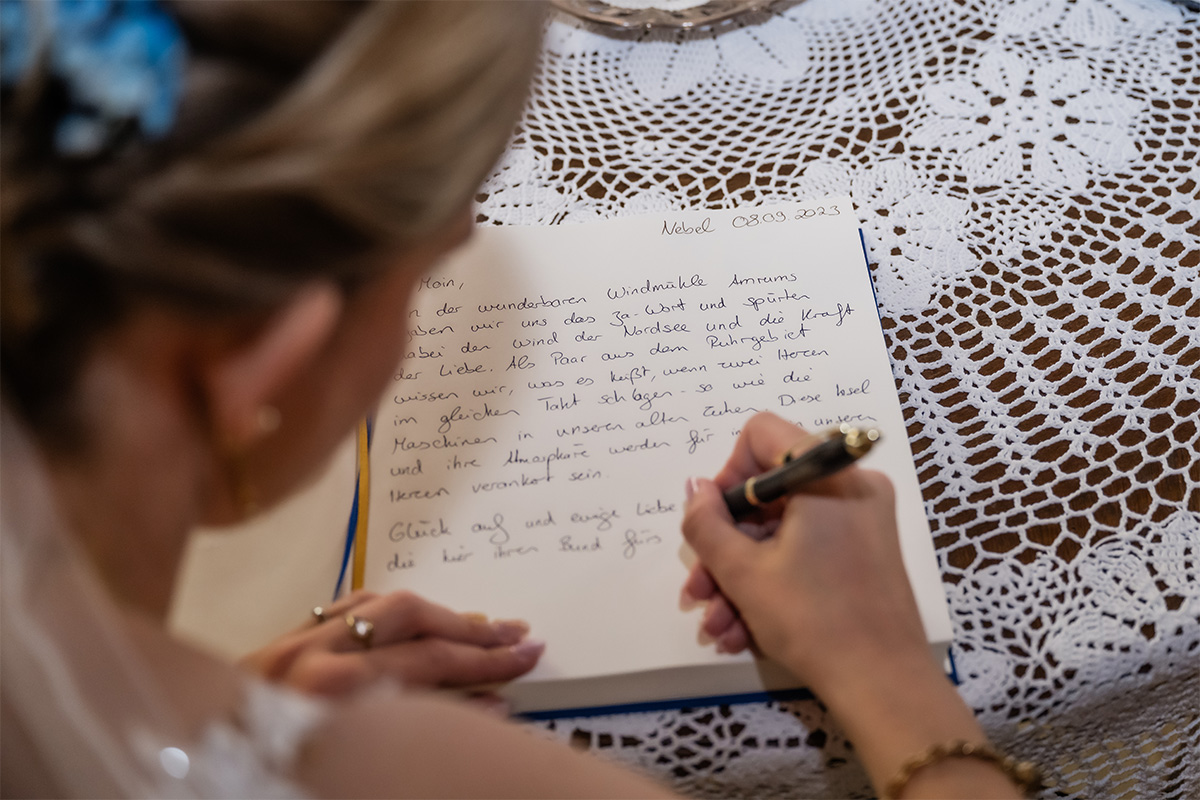 Nebel 08.09.2023
Moin,
der wunderbaren Windmühle Amrums
wir uns das Ja-Wort und spürten
den Wind der Nordsee und die Kraft
der Liebe. Als Paar aus dem Ruhrgebiet
wissen wir, was es heißt, wenn zwei Herzen
im gleichen Takt schlagen - so wie die
Maschinen in unseren alten Zechen. Diese Insel
und ihre Atmosphäre werden für unseren
Herzen verankert sein.
Glück auf und ewige Liebe
die hier ihren Bund fürs